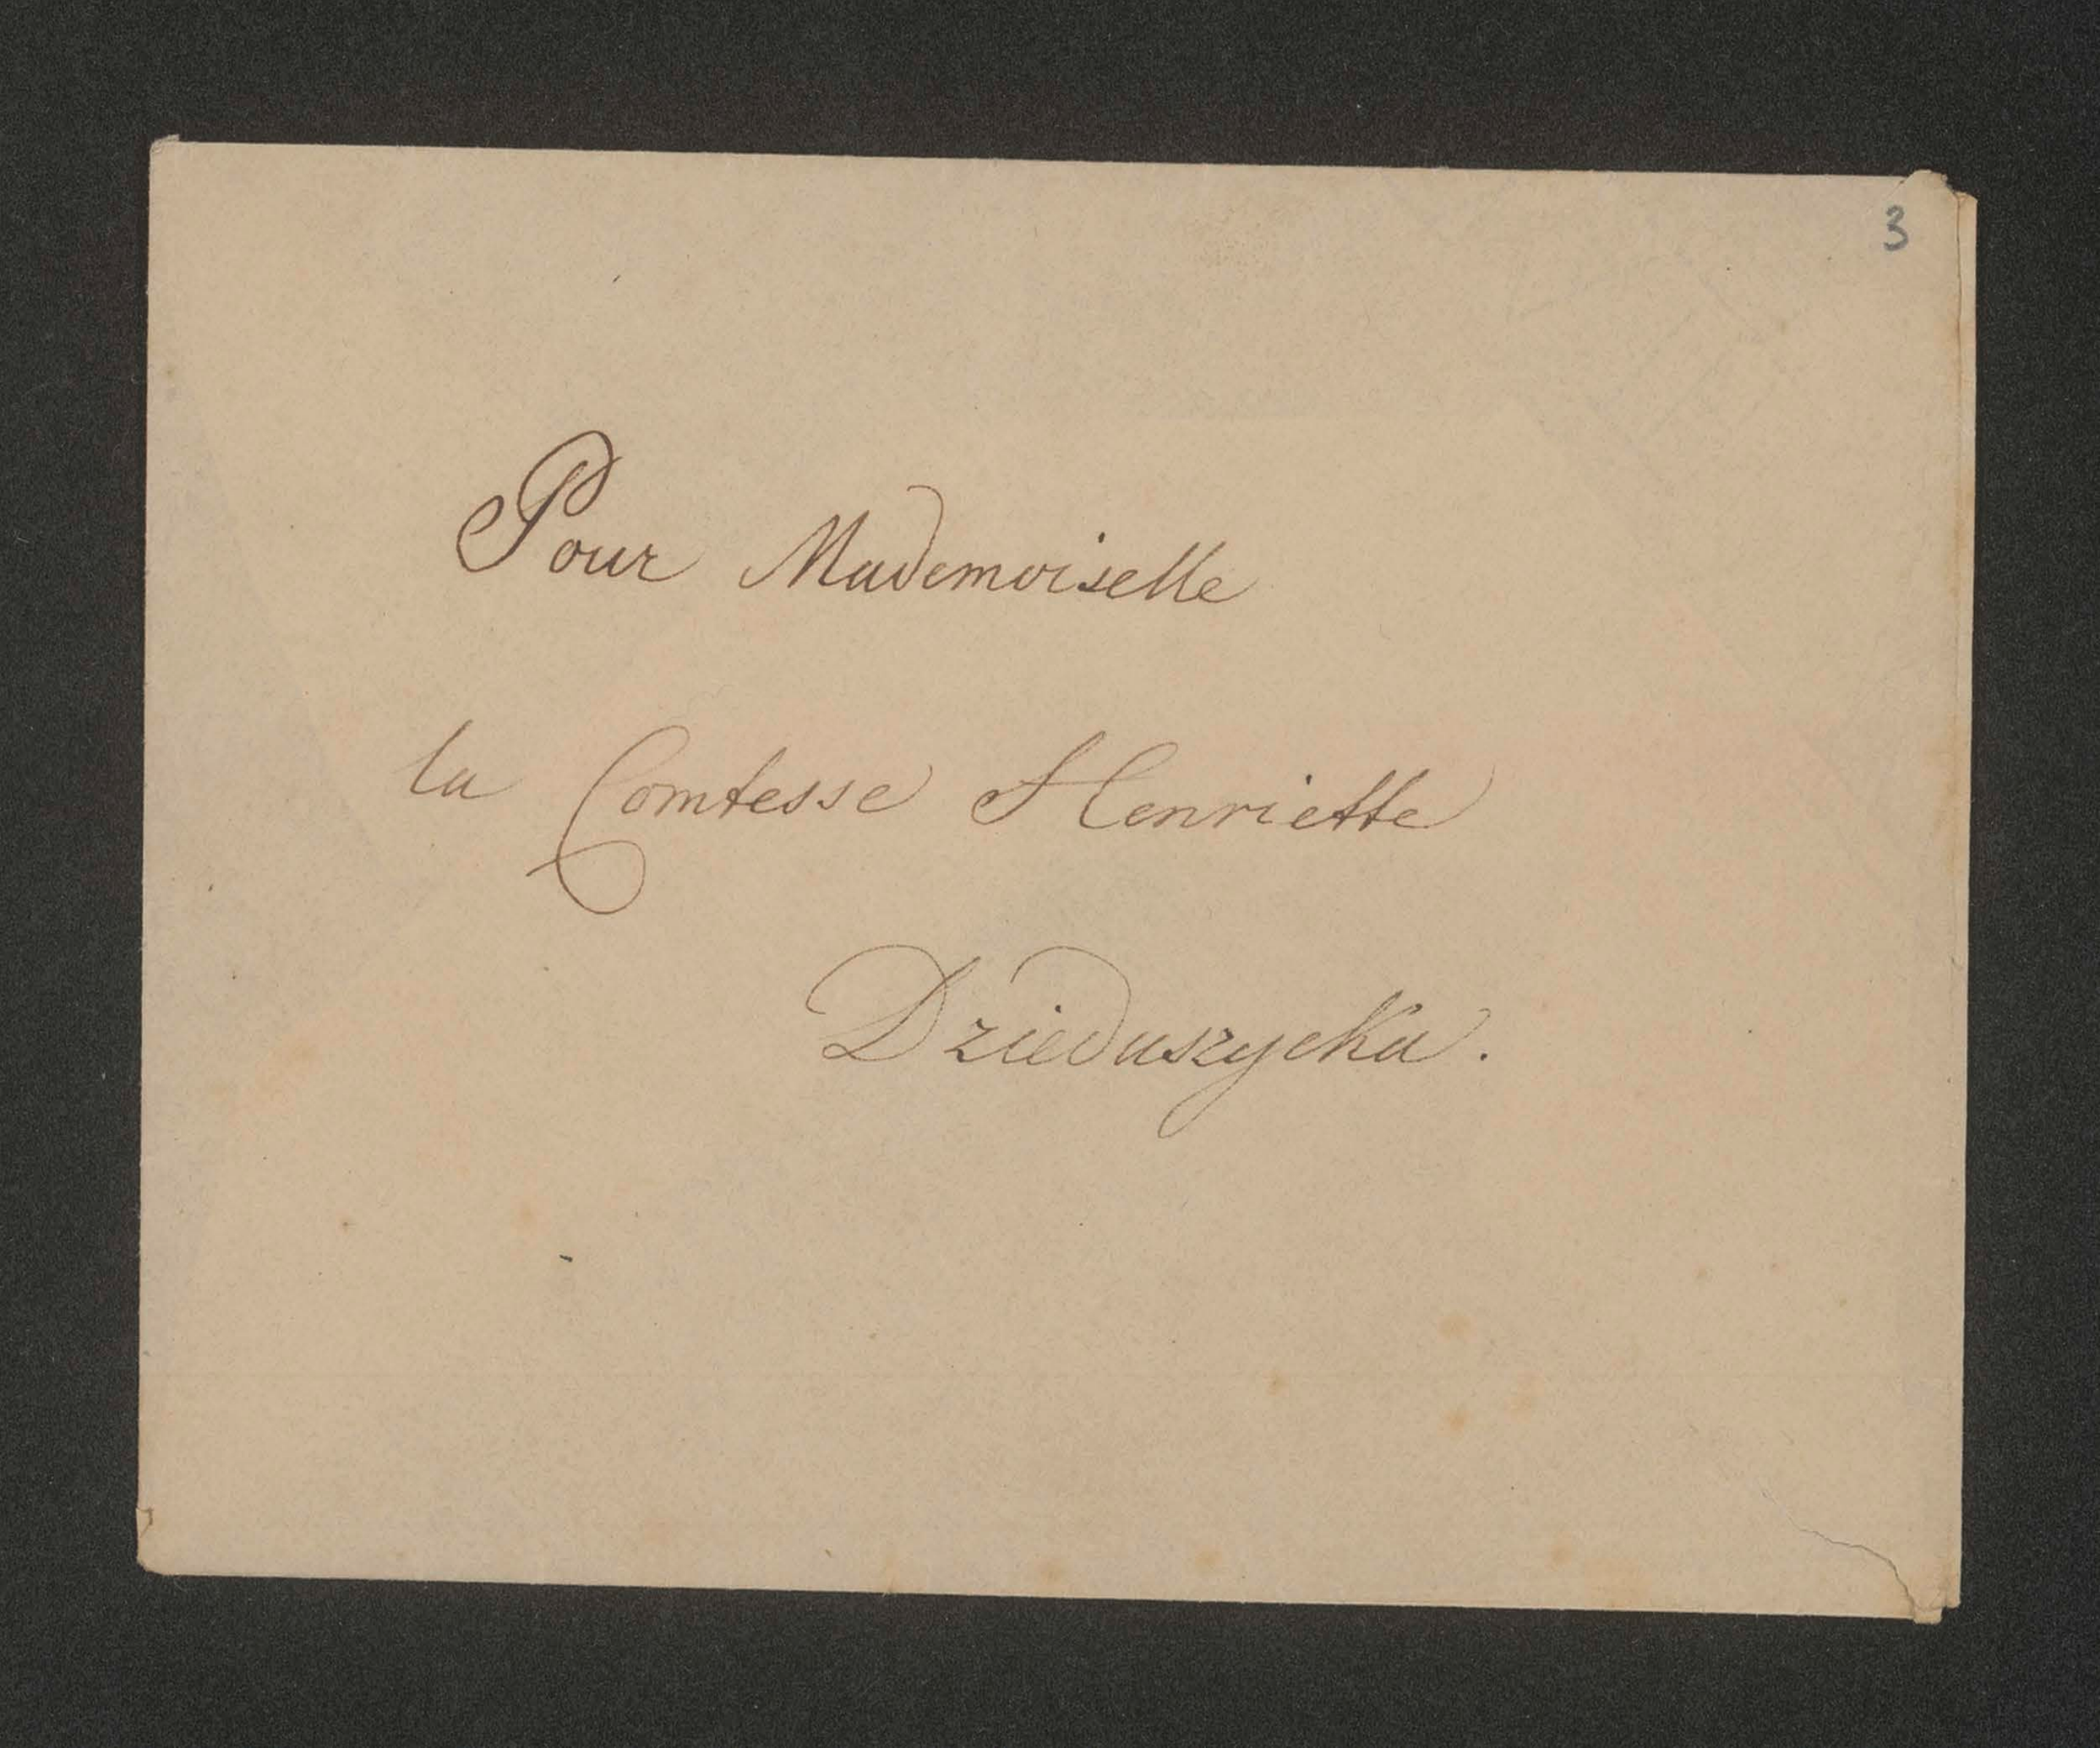 3
Pour Mademoiselle
la Comtesse Henriette
Dzieduszycka.